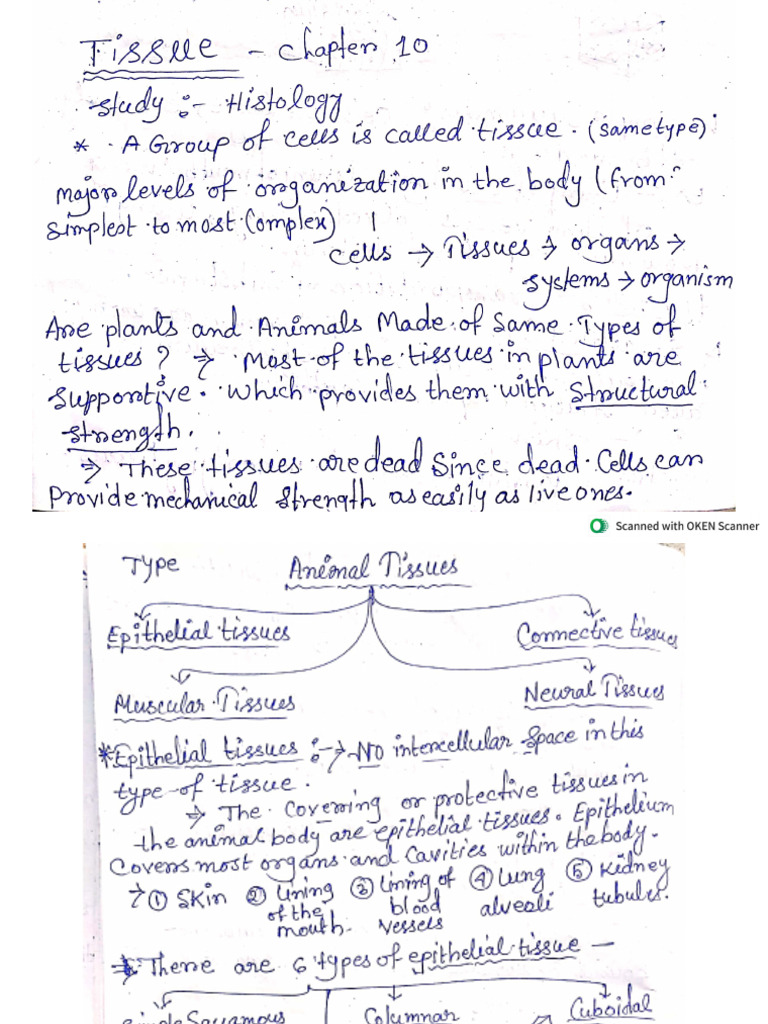 Tissue - Chapter 10
Study :- Histology
* A Group of cells is called tissue. (same type)
major levels of organization in the body (from
simplest to most complex)
cells → Tissues → organs →
systems → organism
Are plants and Animals Made of Same Types of
tissues? ⇒ Most of the tissues in plants are
supportive. Which provides them with Structural
strength.
⇒ These tissues are dead Since dead Cells can
Provide mechanical strength as easily as live ones.
Scanned with OKEN Scanner
Type Animal Tissues
Epithelial tissues Connective tissues
Muscular Tissues Neural Tissues
*Epithelial tissues :-→ No intercellular Space in this
type of tissue.
⇒ The Coverring or protective tissues in
the animal body are epithelial tissues. Epithelium
Covers most organs and Cavities within the body.
→ ① Skin ② Lining of the mouth. ③ Lining of blood vessels ④ Lung alveoli ⑤ Kidney tubules.
There are 6 types of epithelial tissue —
Simple Squamous Columnar Cuboidal